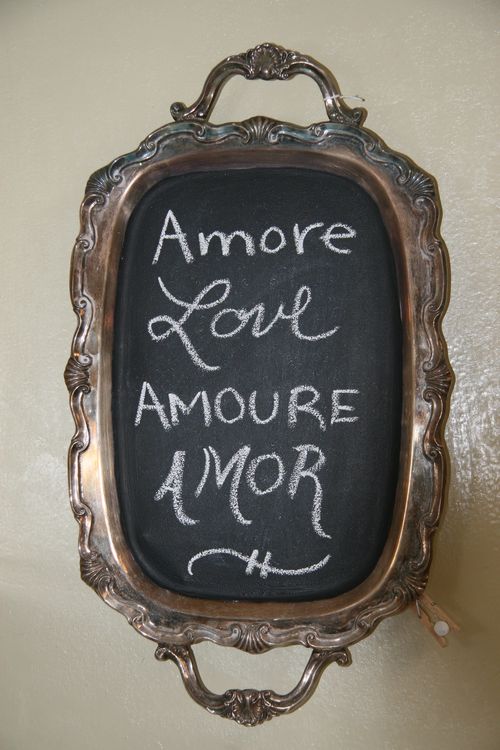 Amore
Love
AMOURE
AMOR